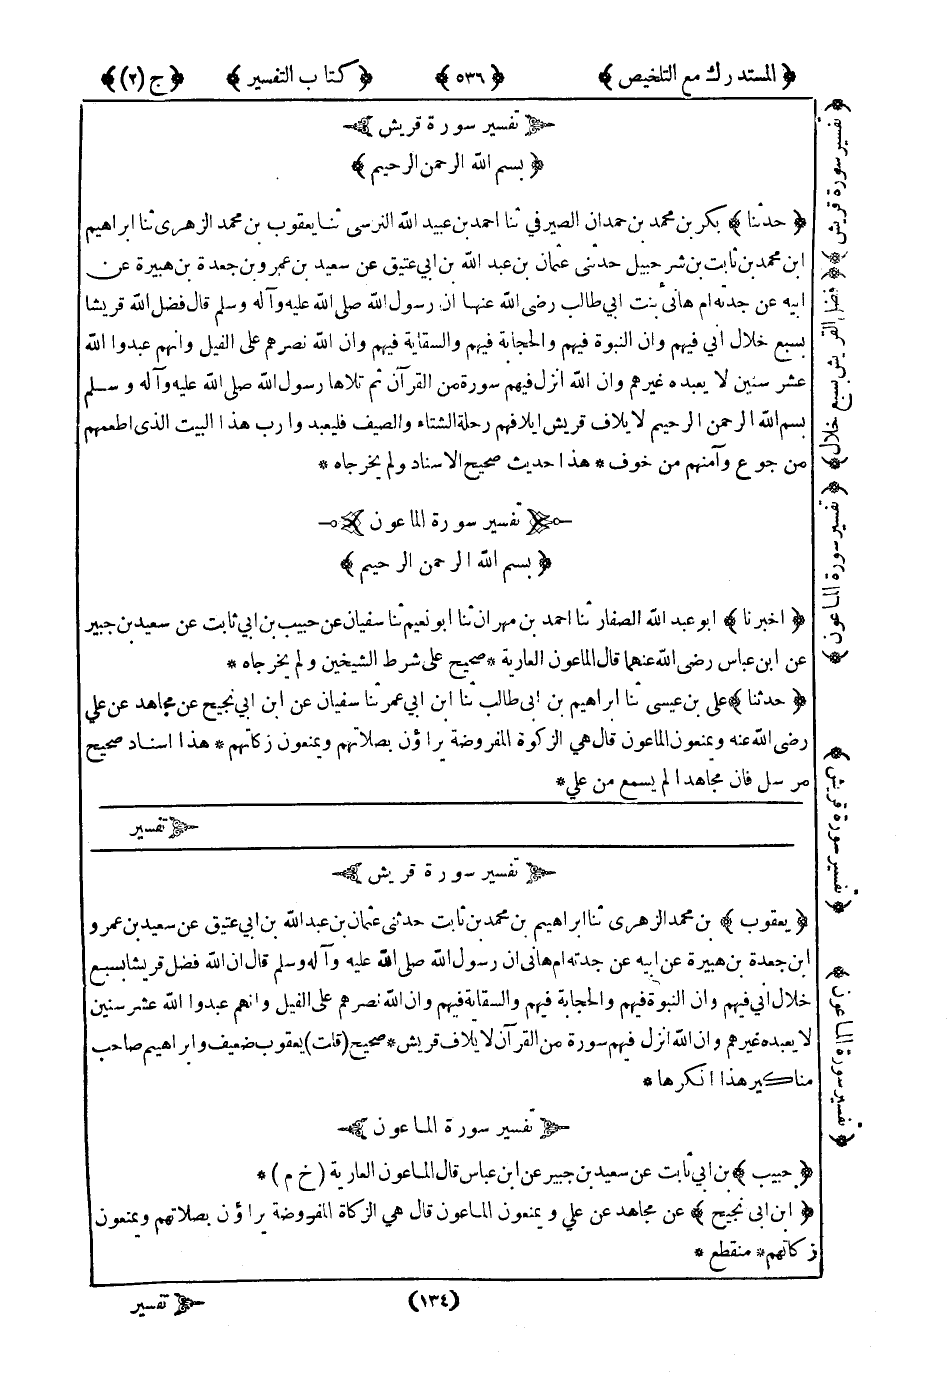 ﴿ المستدرك مع التلخيص ﴾ ﴿ ٥٣٦ ﴾ ﴿ كتاب التفسير ﴾ ﴿ ج (٢) ﴾
تفسير سورة قريش
﴿ بسم الله الرحمن الرحيم ﴾
﴿ حدثنا ﴾ بكر بن محمد بن حمدان الصيرفي ثنا احمد بن عبيد الله النرسى ثنا يعقوب بن محمد الزهرى ثنا ابراهيم
ابن محمد بن ثابت بن شرحبيل حدثنى عثمان بن عبد الله بن ابي عتيق عن سعيد بن عمرو بن جعدة بن هبيرة عن
ابيه عن جدته ام هانئ بنت ابي طالب رضى الله عنها ان رسول الله صلى الله عليه وآله وسلم قال فضل الله قريشا
بسبع خلال أني فيهم وان النبوة فيهم والحجابة فيهم والسقاية فيهم وان الله نصرهم على الفيل وانهم عبدوا الله
عشر سنين لا يعبده غيرهم وان الله انزل فيهم سورة من القرآن ثم تلاها رسول الله صلى الله عليه وآله وسلم
بسم الله الرحمن الرحيم لايلاف قريش ايلافهم رحلة الشتاء والصيف فليعبدوا رب هذا البيت الذى اطعمهم
من جوع وآمنهم من خوف * هذا حديث صحيح الاسناد ولم يخرجاه *
تفسير سورة الماعون
﴿ بسم الله الرحمن الرحيم ﴾
﴿ اخبرنا ﴾ ابو عبد الله الصفار ثنا احمد بن مهران ثنا ابو نعيم ثنا سفيان عن حبيب بن ابي ثابت عن سعيد بن جبير
عن ابن عباس رضى الله عنهما قال الماعون العارية * صحيح على شرط الشيخين ولم يخرجاه *
﴿ حدثنا ﴾ على بن عيسى ثنا ابراهيم بن ابى طالب ثنا ابن ابي عمر ثنا سفيان عن ابن ابي نجيح عن مجاهد عن علي
رضى الله عنه ويمنعون الماعون قال هي الزكوة المفروضة يراؤن بصلاتهم ويمنعون زكاتهم * هذا اسناد صحيح
مرسل فان مجاهدا لم يسمع من علي *
تفسير
تفسير سورة قريش
﴿ يعقوب ﴾ بن محمد الزهرى ثنا ابراهيم بن محمد بن ثابت حدثنى عثمان بن عبد الله بن ابي عتيق عن سعيد بن عمرو
ابن جعدة بن هبيرة عن ابيه عن جدته ام هانى ان رسول الله صلى الله عليه وآله وسلم قال ان الله فضل قريشا بسبع
خلال أني فيهم وان النبوة فيهم والحجابة فيهم والسقاية فيهم وان الله نصرهم على الفيل وانهم عبدوا الله عشر سنين
لا يعبده غيرهم وان الله انزل فيهم سورة من القرآن لايلاف قريش * صحيح (قلت) يعقوب ضعيف وابراهيم صاحب
مناكير هذا انكرها *
تفسير سورة الماعون
﴿ حبيب ﴾ بن ابي ثابت عن سعيد بن جبير عن ابن عباس قال الماعون العارية (خ م) *
﴿ ابن ابى نجيح ﴾ عن مجاهد عن علي ويمنعون الماعون قال هي الزكاة المفروضة يراؤن بصلاتهم ويمنعون
زكاتهم * منقطع *
(١٣٤)
تفسير
﴿ تفسير سورة قريش ﴾
﴿ فضل القريش بسبع خلال ﴾
﴿ تفسير سورة الماعون ﴾
﴿ تفسير سورة قريش ﴾
﴿ تفسير سورة الماعون ﴾